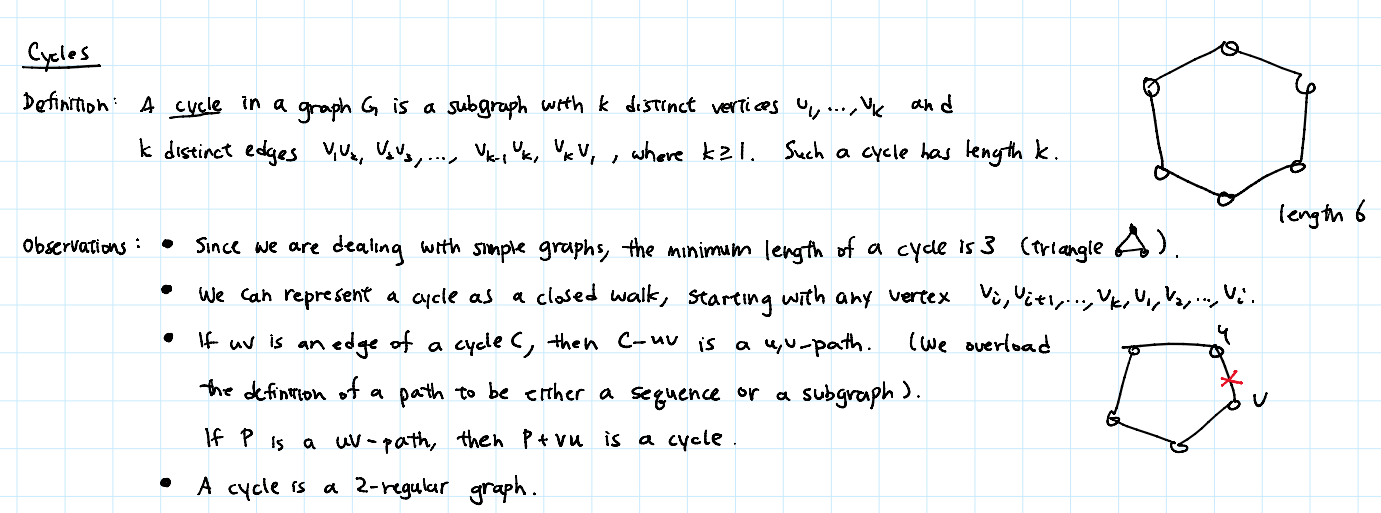 Cycles
Definition: A cycle in a graph G is a subgraph with k distinct vertices v₁, ..., vₖ and
k distinct edges v₁v₂, v₂v₃, ..., vₖ₋₁vₖ, vₖv₁, where k≥1. Such a cycle has length k.
length 6
Observations: • Since we are dealing with simple graphs, the minimum length of a cycle is 3 (triangle).
• We can represent a cycle as a closed walk, starting with any vertex vᵢ, vᵢ₊₁, ..., vₖ, v₁, v₂, ..., vᵢ.
• If uv is an edge of a cycle C, then C-uv is a u,v-path. (We overload
the definition of a path to be either a sequence or a subgraph).
If P is a uv-path, then P+vu is a cycle.
u
v
• A cycle is a 2-regular graph.